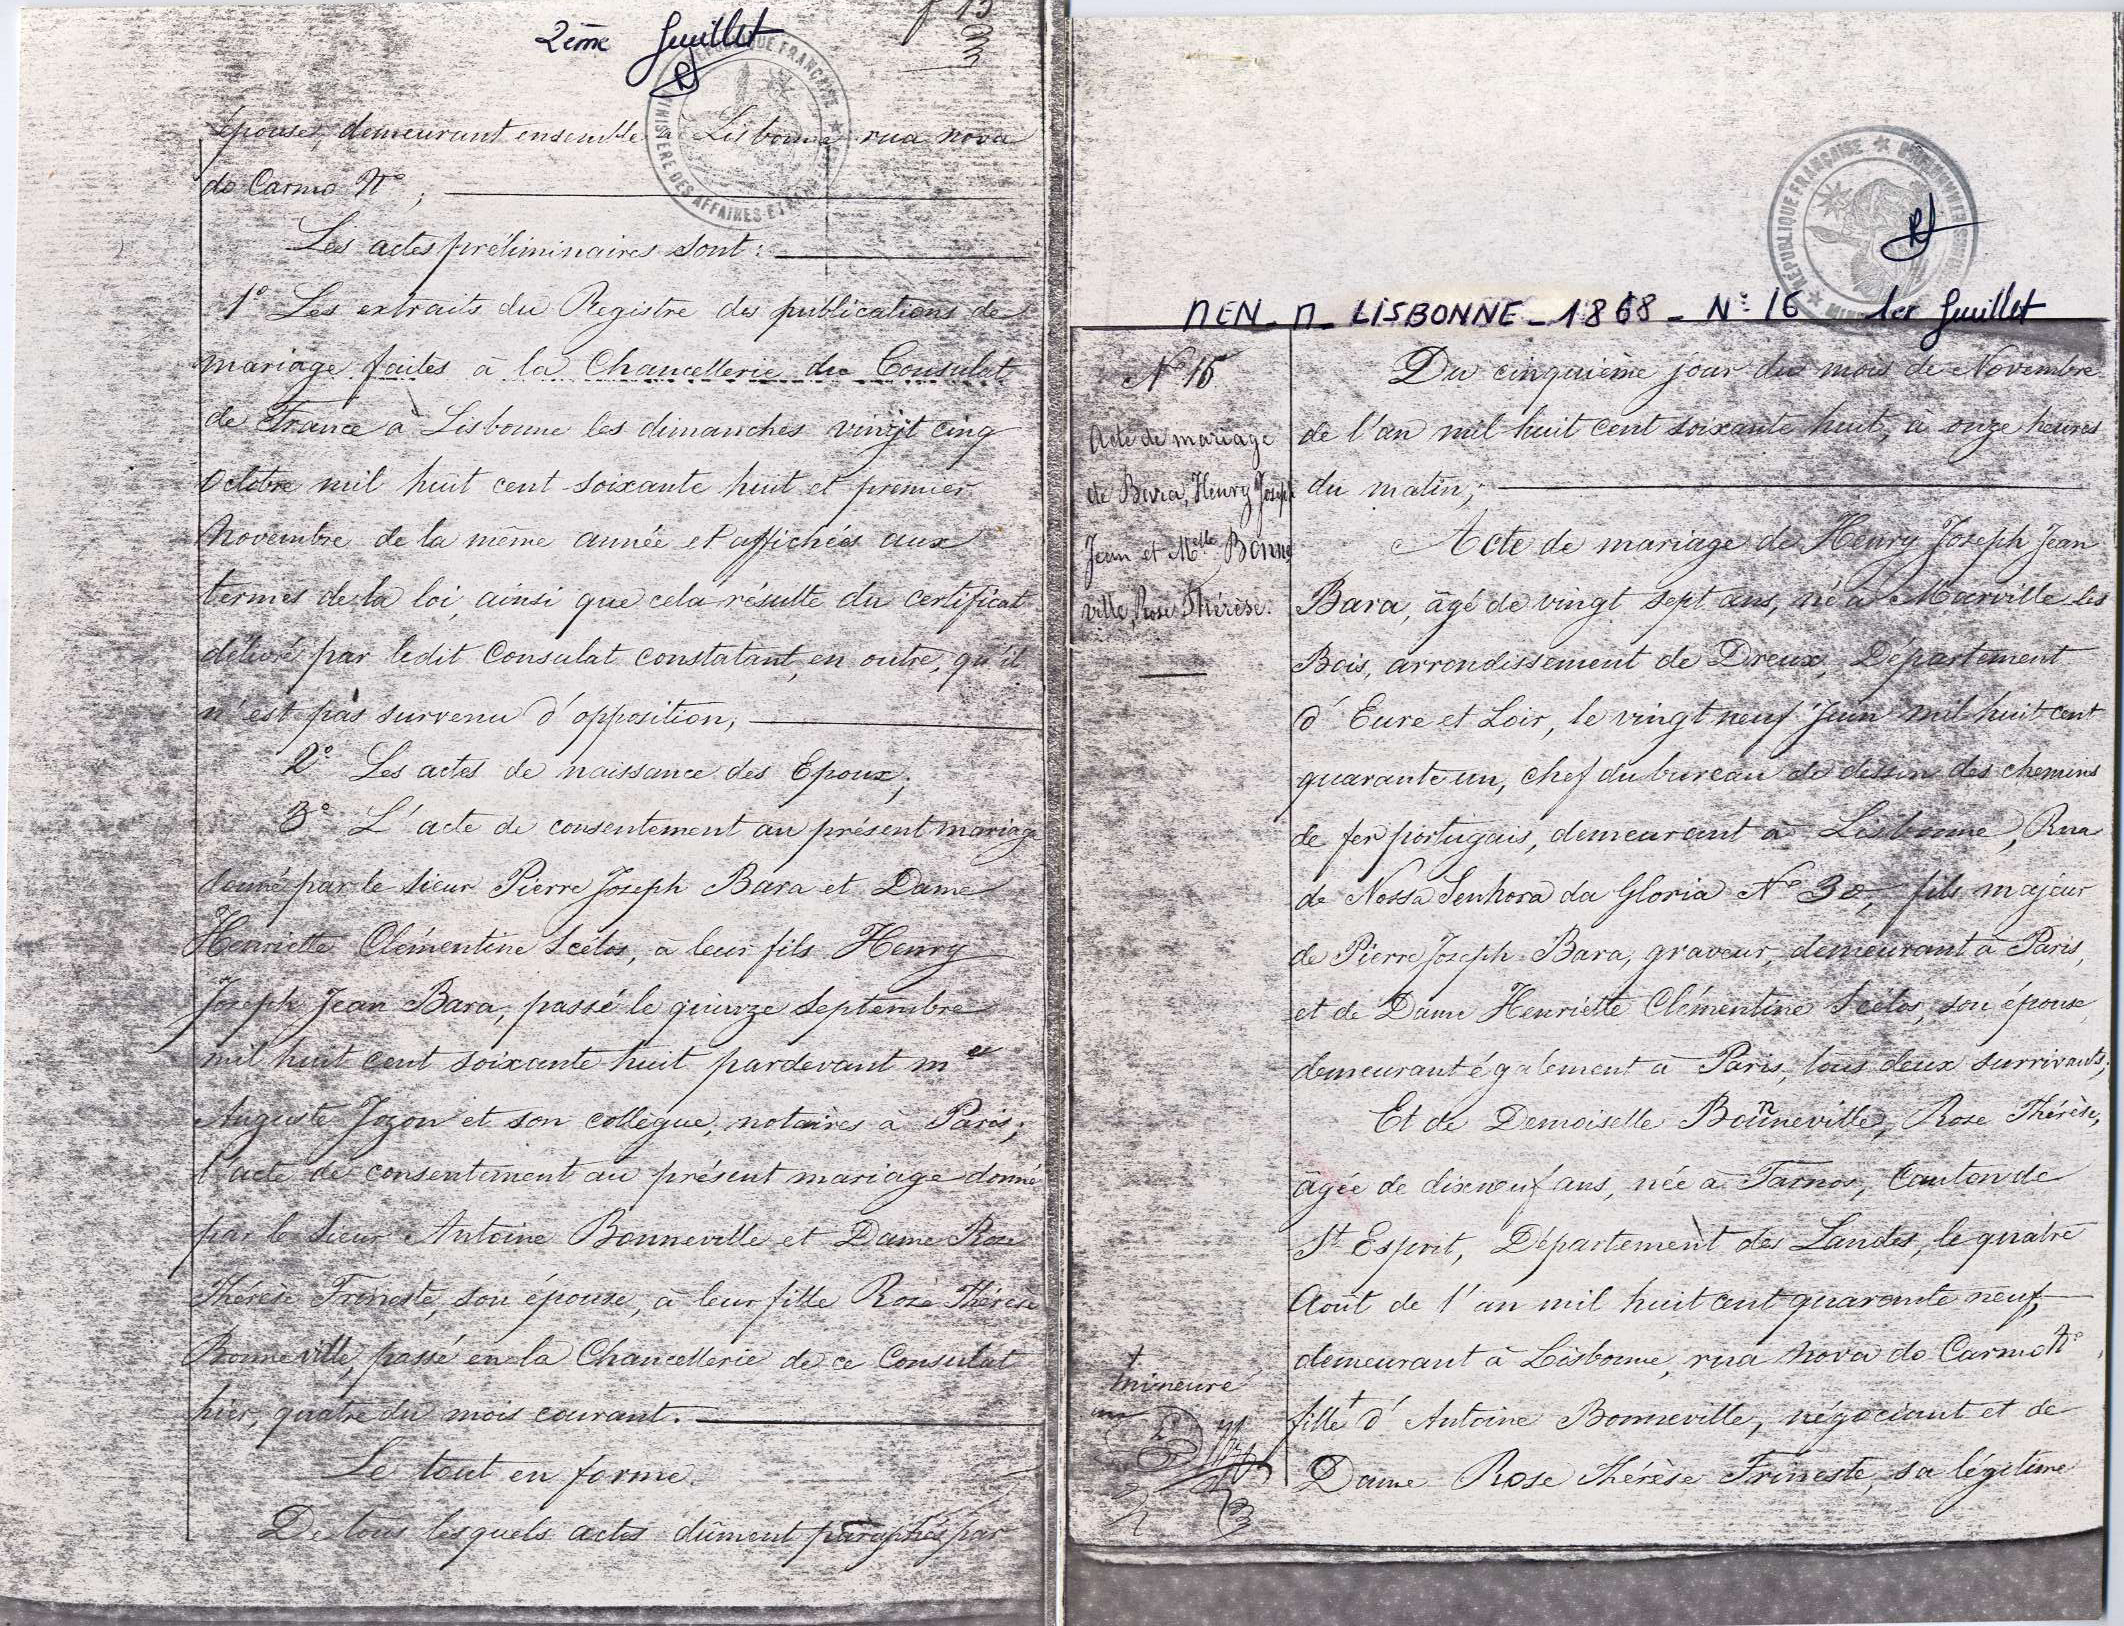 2ème feuillet
épouse, demeurant ensemble à Lisbonne rua nova
do Carmo Nº ,
Les actes préliminaires sont :
1º Les extraits du Registre des publications de
mariage faites à la Chancellerie du Consulat
de France à Lisbonne les dimanches vingt cinq
Octobre mil huit cent soixante huit et premier
Novembre de la même année et affichées aux
termes de la loi, ainsi que cela résulte du certificat
délivré par ledit Consulat constatant, en outre, qu'il
n'est pas survenu d'opposition,
2º Les actes de naissance des Epoux ;
3º L'acte de consentement au présent mariage
donné par le sieur Pierre Joseph Bara et Dame
Henriette Clémentine Scelos, à leur fils Henry
Joseph Jean Bara, passé le quinze Septembre
mil huit cent soixante huit pardevant Me
Auguste Jozon et son collègue, notaires à Paris ;
l'acte de consentement au présent mariage donné
par le sieur Antoine Bonneville et Dame Rose
Thérèse Frineste, son épouse, à leur fille Rose Thérèse
Bonneville, passé en la Chancellerie de ce Consulat
hier, quatre du mois courant.
Le tout en forme.
De tous lesquels actes dûment paraphés par
RÉPUBLIQUE FRANÇAISE
MEN - M - LISBONNE - 1868 - Nº 16 1er feuillet
Nº 16
Acte de mariage
de Bara, Henry Joseph
Jean et Melle Bonne
ville, Rose Thérèse.
Du cinquième jour du mois de Novembre
de l'an mil huit cent soixante huit, à onze heures
du matin,
Acte de mariage de Henry Joseph Jean
Bara, âgé de vingt sept ans, né à Marville les
Bois, arrondissement de Dreux, Département
d'Eure et Loir, le vingt neuf Juin mil huit cent
quarante un, chef du bureau de dessin des chemins
de fer portugais, demeurant à Lisbonne, Rua
de Nossa Senhora da Gloria Nº 30, fils majeur
de Pierre Joseph Bara, graveur, demeurant à Paris,
et de Dame Henriette Clémentine Scélos, son épouse,
demeurant également à Paris, tous deux survivants ;
Et de Demoiselle Bonneville, Rose Thérèse,
âgée de dixneuf ans, née à Tarnos, Canton de
St Esprit, Département des Landes, le quatre
Août de l'an mil huit cent quarante neuf,
demeurant à Lisbonne, rua nova do Carmo Nº ,
fille + d'Antoine Bonneville, négociant et de
Dame Rose Thérèse Frineste, sa légitime
+
mineure